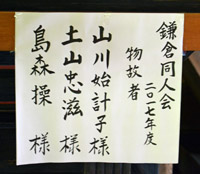 鎌倉同人会
二〇一七年度
物故者
山川始計子様
土山忠滋様
島森操様